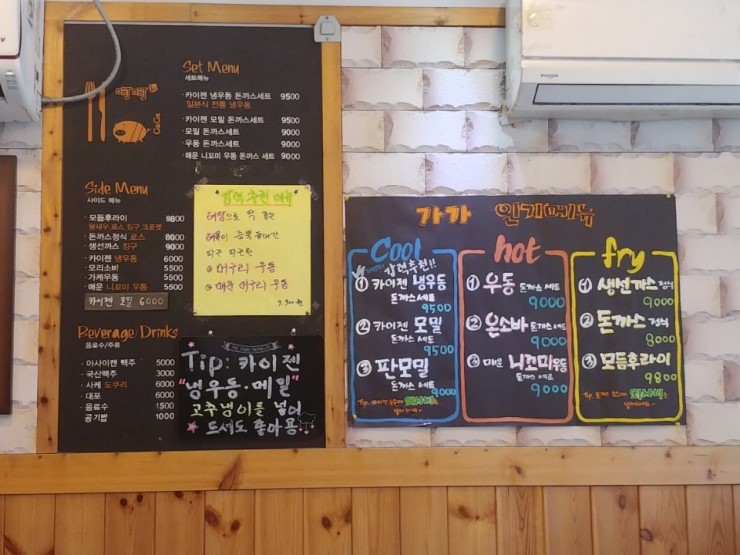 Set Menu
세트메뉴
· 카이젠 냉우동 돈까스세트 9500
일본식 전통 냉우동
· 카이젠 모밀 돈까스세트 9500
· 모밀 돈까스세트 9000
· 우동 돈까스세트 9000
· 매운 니꼬미 우동 돈까스 세트 9000
GaGa
Side Menu
사이드 메뉴
· 모듬후라이 9800
왕새우,로스,킹구,크로켓
· 돈까스정식 로스 8000
· 생선까스 킹구 9000
· 카이젠 냉우동 6000
· 모리소바 5500
· 가케우동 5500
· 매운 니꼬미 우동 5500
카이젠 모밀 6000
Beverage/Drinks
음료수/주류
· 아사이캔 맥주 5000
· 국산맥주 3000
· 사케 도쿠리 6000
· 대포 6000
· 음료수 1500
· 공기밥 1000
추천 메뉴
우동
매운 우동
9,900원
Tip: 카이젠
"냉우동·메밀"
고추냉이를 넣어
드셔도 좋아용!!
가가 인기메뉴
Cool
강력추천!!
① 카이젠 냉우동
돈까스 세트
9500
② 카이젠 모밀
돈까스 세트
9500
③ 판모밀
돈까스 세트
9000
hot
① 우동 돈까스 세트
9000
② 온소바 돈까스 세트
9000
③ 매운 니꼬미우동
돈까스 세트
9000
fry
① 생선까스 정식
9000
② 돈까스 정식
8000
③ 모듬후라이
9800